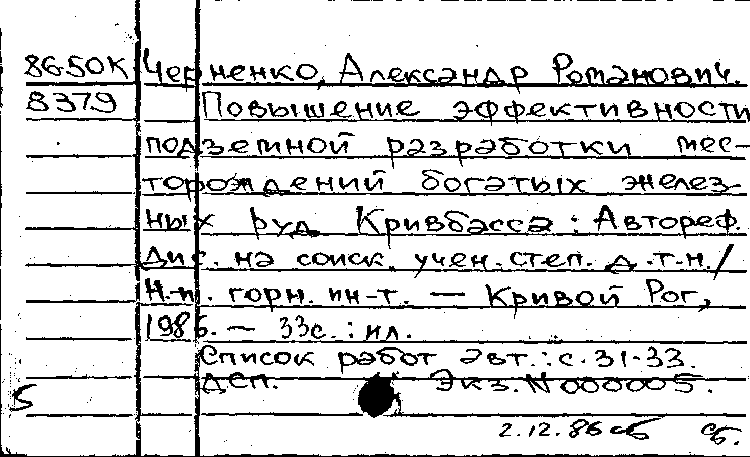 86-50К Черненко, Александр Романович.
8379 Повышение эффективности
подземной разработки мес-
торождений богатых желез-
ных руд Кривбасса : Автореф.
дис. на соиск. учен. степ. д.т.н./
Н.-и. горн. ин-т. — Кривой Рог,
1986. — 33с. : ил.
Список работ авт.: с. 31-33.
ДСП. Экз. N 000005.
5
2.12.86 сб сб.